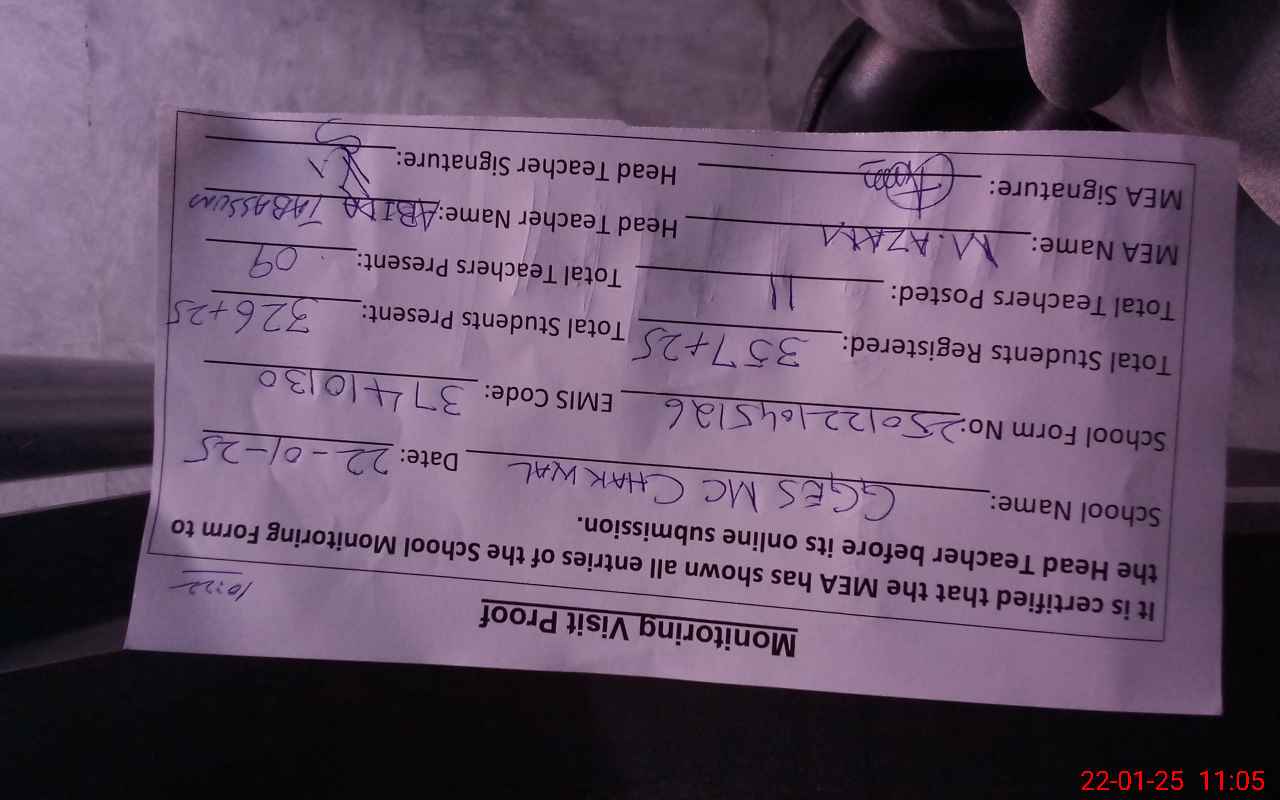 Monitoring Visit Proof
10:22
It is certified that the MEA has shown all entries of the School Monitoring Form to
the Head Teacher before its online submission.
School Name: GGES MC CHAKWAL Date: 22-01-25
School Form No: 250122104S126 EMIS Code: 37410130
Total Students Registered: 357+25 Total Students Present: 326+25
Total Teachers Posted: 11 Total Teachers Present: 09
MEA Name: M. AZAM Head Teacher Name: ABIDA TABASSUM
MEA Signature: Head Teacher Signature:
22-01-25 11:05